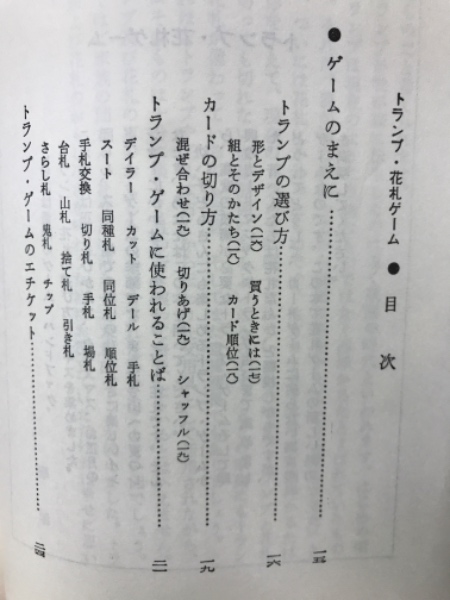 トランプ・花札ゲーム ● 目次
● ゲームのまえに……………一五
トランプの選び方……………一六
形とデザイン(一六) 買うときには(一七)
組とそのかたち(一八) カード順位(一八)
カードの切り方……………一九
混ぜ合わせ(一九) 切りあげ(一九) シャッフル(一九)
トランプ・ゲームに使われることば……………二一
ディラー カット デール 手札
スート 同種札 同位札 順位札
手札交換 切り札 手札 場札
台札 山札 捨て札 引き札
さらし札 鬼札 チップ
トランプ・ゲームのエチケット……………二四